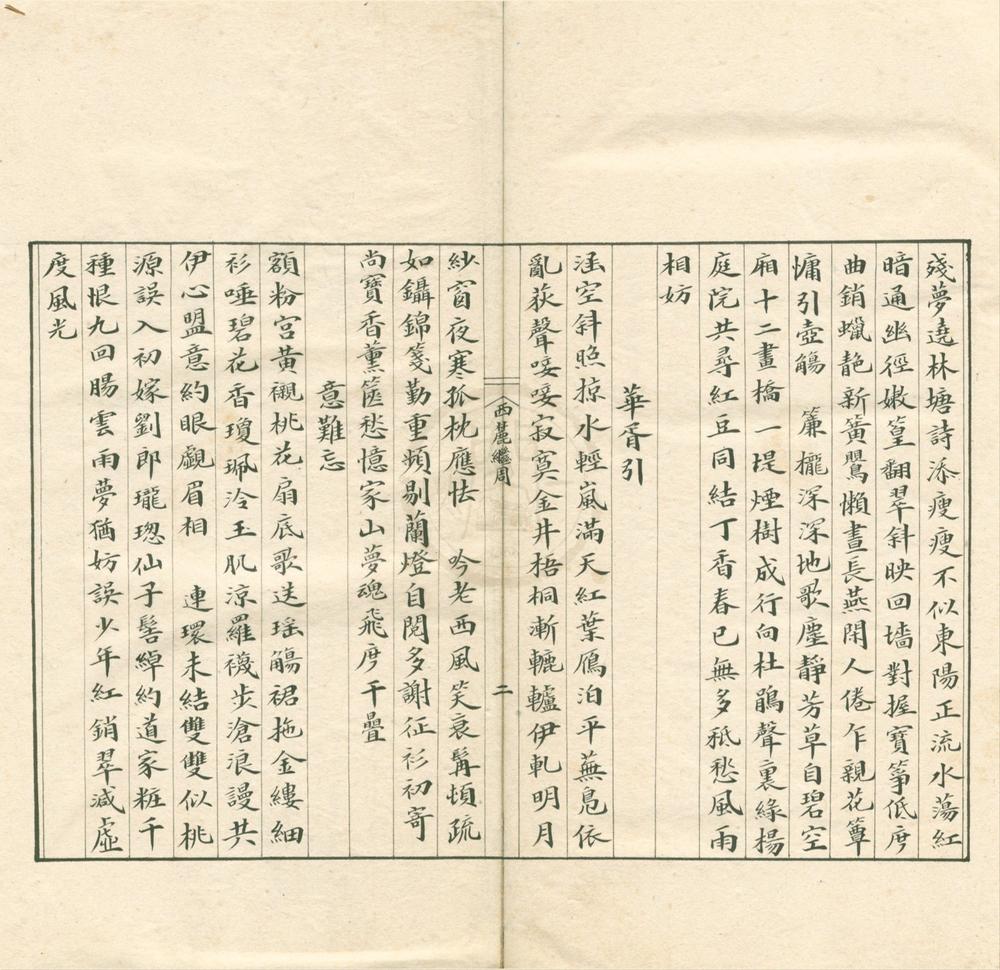 殘夢遶林塘詩添瘦瘦不似東陽正流水蕩紅
暗通幽徑嫩篁翻翠斜映回墻對握寶箏低度
曲銷蠟靘新簧鸎懶晝長燕閑人倦乍親花簟
慵引壺觴　簾櫳深深地歌塵靜芳草自碧空
廂十二畫橋一堤煙樹成行向杜鵑聲裏綠楊
庭院共尋紅豆同結丁香春已無多秪愁風雨
相妨
華胥引
涵空斜照掠水輕嵐滿天紅葉鴈泊平蕪鳧依
亂荻聲唼唼寂寞金井梧桐漸轆轤伊軋明月
西麓繼周
二
紗窗夜寒孤枕應怯　吟老西風笑衰髯頓疏
如鑷錦箋勤重頻剔蘭燈自閱多謝征衫初寄
尚寶香薰篋愁憶家山夢魂飛度千疊
意難忘
額粉宮黃襯桃花扇底歌送瑤觴裙拖金縷細
衫唾碧花香瓊珮泠玉肌涼羅襪步滄浪謾共
伊心盟意約眼覷眉相　連環未結雙雙似桃
源誤入初嫁劉郎瓏璁仙子髻綽約道家粧千
種恨九回腸雲雨夢猶妨誤少年紅銷翠減虛
度風光